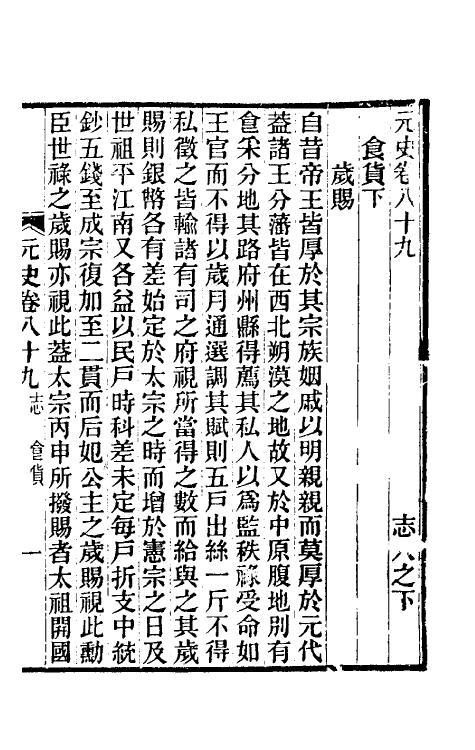 元史卷八十九　志八之下
食貨下
歲賜
自昔帝王皆厚於其宗族姻戚以明親親而莫厚於元代
葢諸王分藩皆在西北朔漠之地故又於中原腹地別有
食采分地其路府州縣得薦其私人以爲監秩祿受命如
王官而不得以歲月通選調其賦則五戶出絲一斤不得
私徵之皆輸諸有司之府視所當得之數而給與之其歲
賜則銀幣各有差始定於太宗之時而增於憲宗之日及
世祖平江南又各益以民戶時科差未定每戶折支中統
鈔五錢至成宗復加至二貫而后妃公主之歲賜視此勳
臣世祿之歲賜亦視此葢太宗丙申所撥賜者太祖開國
元史卷八十九 志 食貨　一